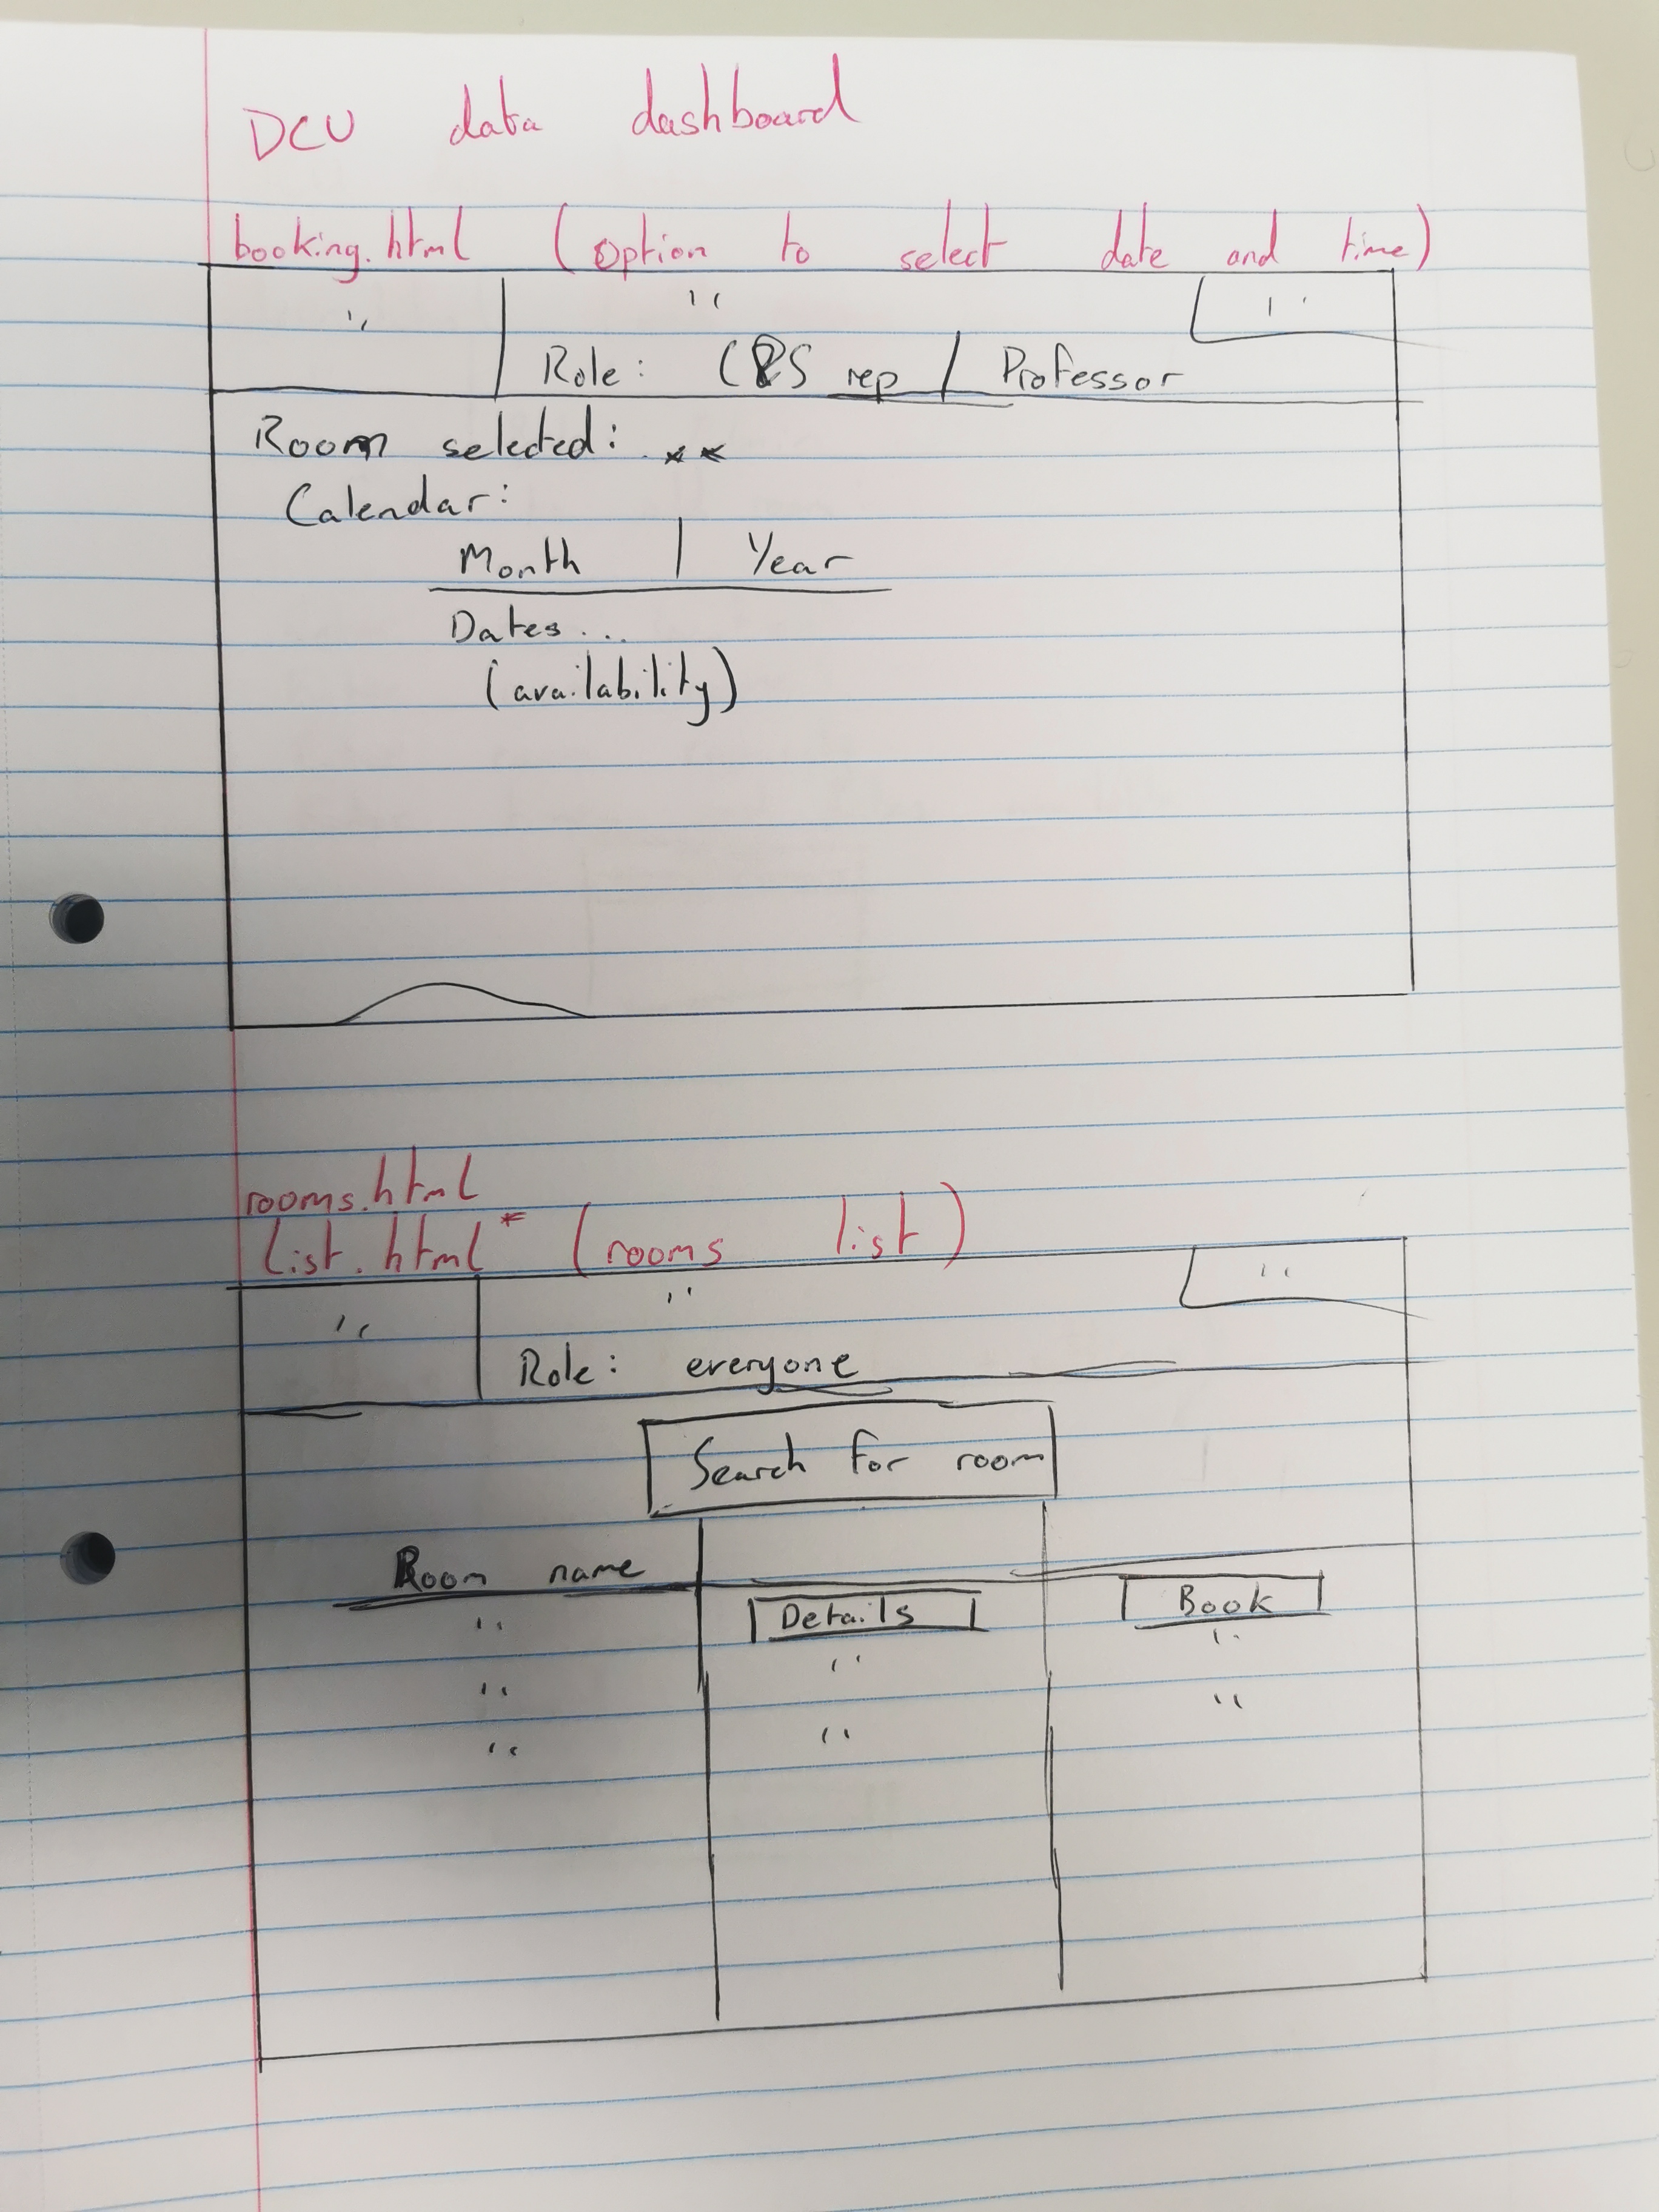 DCU data dashboard
booking.html (option to select date and time)
" " "
Role: C&S rep / Professor
Room selected: . * *
Calendar:
Month | Year
Dates ...
(availability)
rooms.html
list.html* (rooms list)
" " "
Role: everyone
Search for room
Room name
" Details Book
" " "
" " "